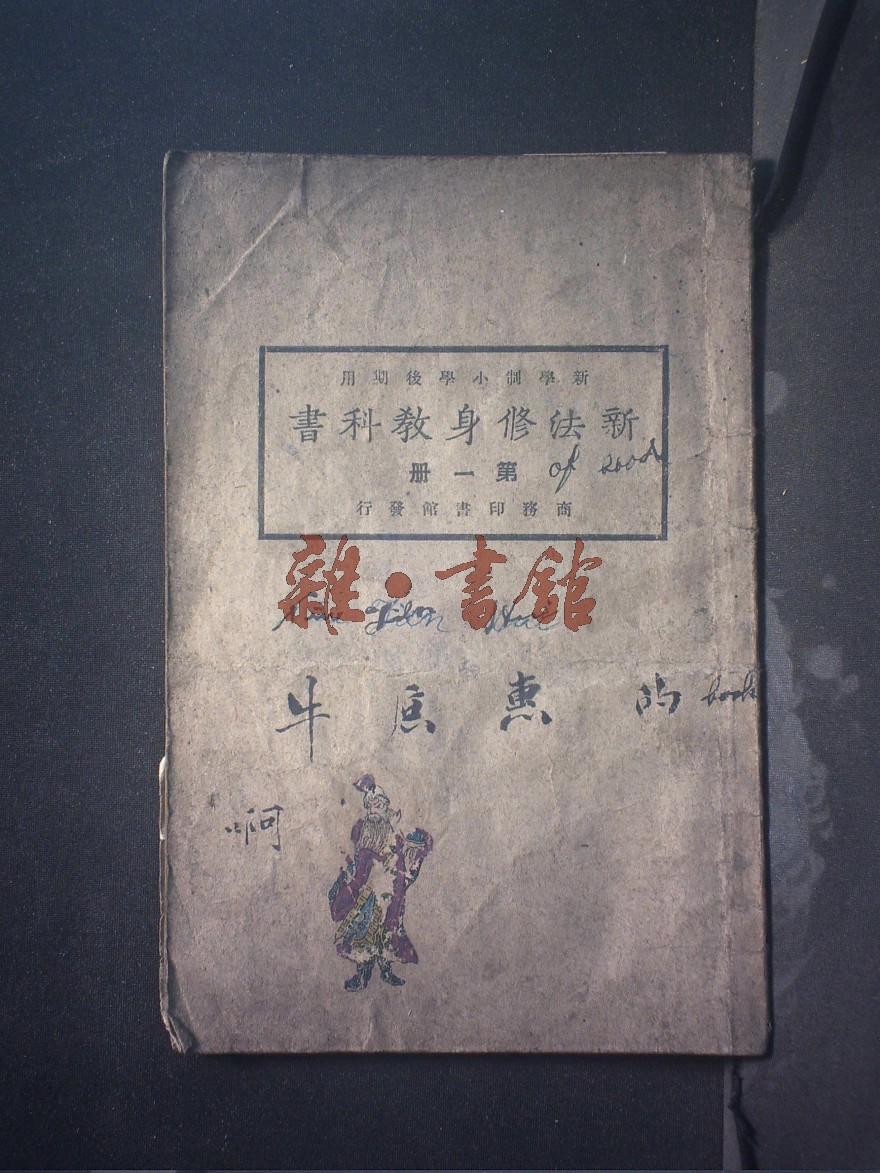 新學制小學後期用
新法修身教科書
第一册
of good
商務印書館發行
雜·書館
牛 惠 的 book
啊